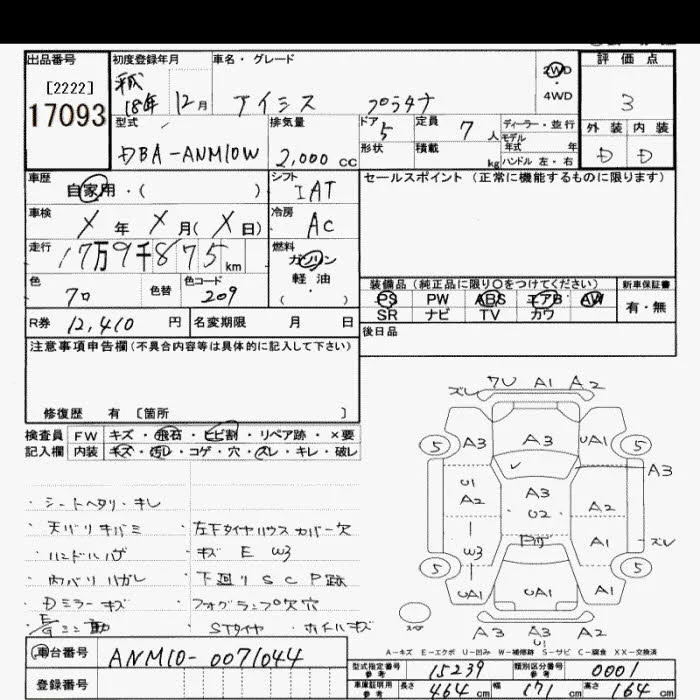 出品番号
[2222]
17093
初度登録年月
平成
18年 12月
車名・グレード
アイシス プラタナ
2WD
・
4WD
評価点
3
外装 内装
D D
型式
DBA-ANM10W
排気量
2,000 cc
ドア
5
形状
定員
7 人
積載
kg
ディーラー・並行
モデル
年式 年
ハンドル 左・右
車歴
自家用・( )
シフト
IAT
車検
X 年 X 月(X 日)
冷房
AC
走行
17万9千875 km
燃料
ガソリン
軽油
( )
色
クロ
色替
色コード
209
R券 12,410 円
名変期限 月 日
セールスポイント(正常に機能するものに限ります)
装備品(純正品に限り○をつけてください)
PS PW ABS エアB AW
SR ナビ TV カワ
新車保証書
有・無
後日品
注意事項申告欄(不具合内容等は具体的に記入して下さい)
修復歴 有 〔箇所 〕
検査員 FW キズ・飛石・ヒビ割・リペア跡・×要
記入欄 内装 キズ・汚レ・コゲ・穴・スレ・キレ・破レ
・シートヘタリ・キレ
・天バリキバミ
・ハンドルハゲ
・内バリハガレ
・Dミラーキズ
・左下タイヤハウスカバー欠
・キズ E W3
・下廻り S C P跡
・フォグランプ欠穴
・STタイヤ ・ホイルキズ
ズレ 7U A1 A2
5 A3 A3 UA1 5
A3
U1
A2
A3
U2
A2
W3
A1 ズレ
5 UA1 UA1 A1 5
A3 A3 A2
U1
A-キズ E-エクボ U-凹み W-補修跡 S-サビ C-腐食 XX-交換済
車台番号
ANM10-0071044
登録番号
型式指定番号
参考
15239
類別区分番号
参考
0001
車庫証明用
参考
長さ 464 cm 幅 171 cm 高さ 164 cm